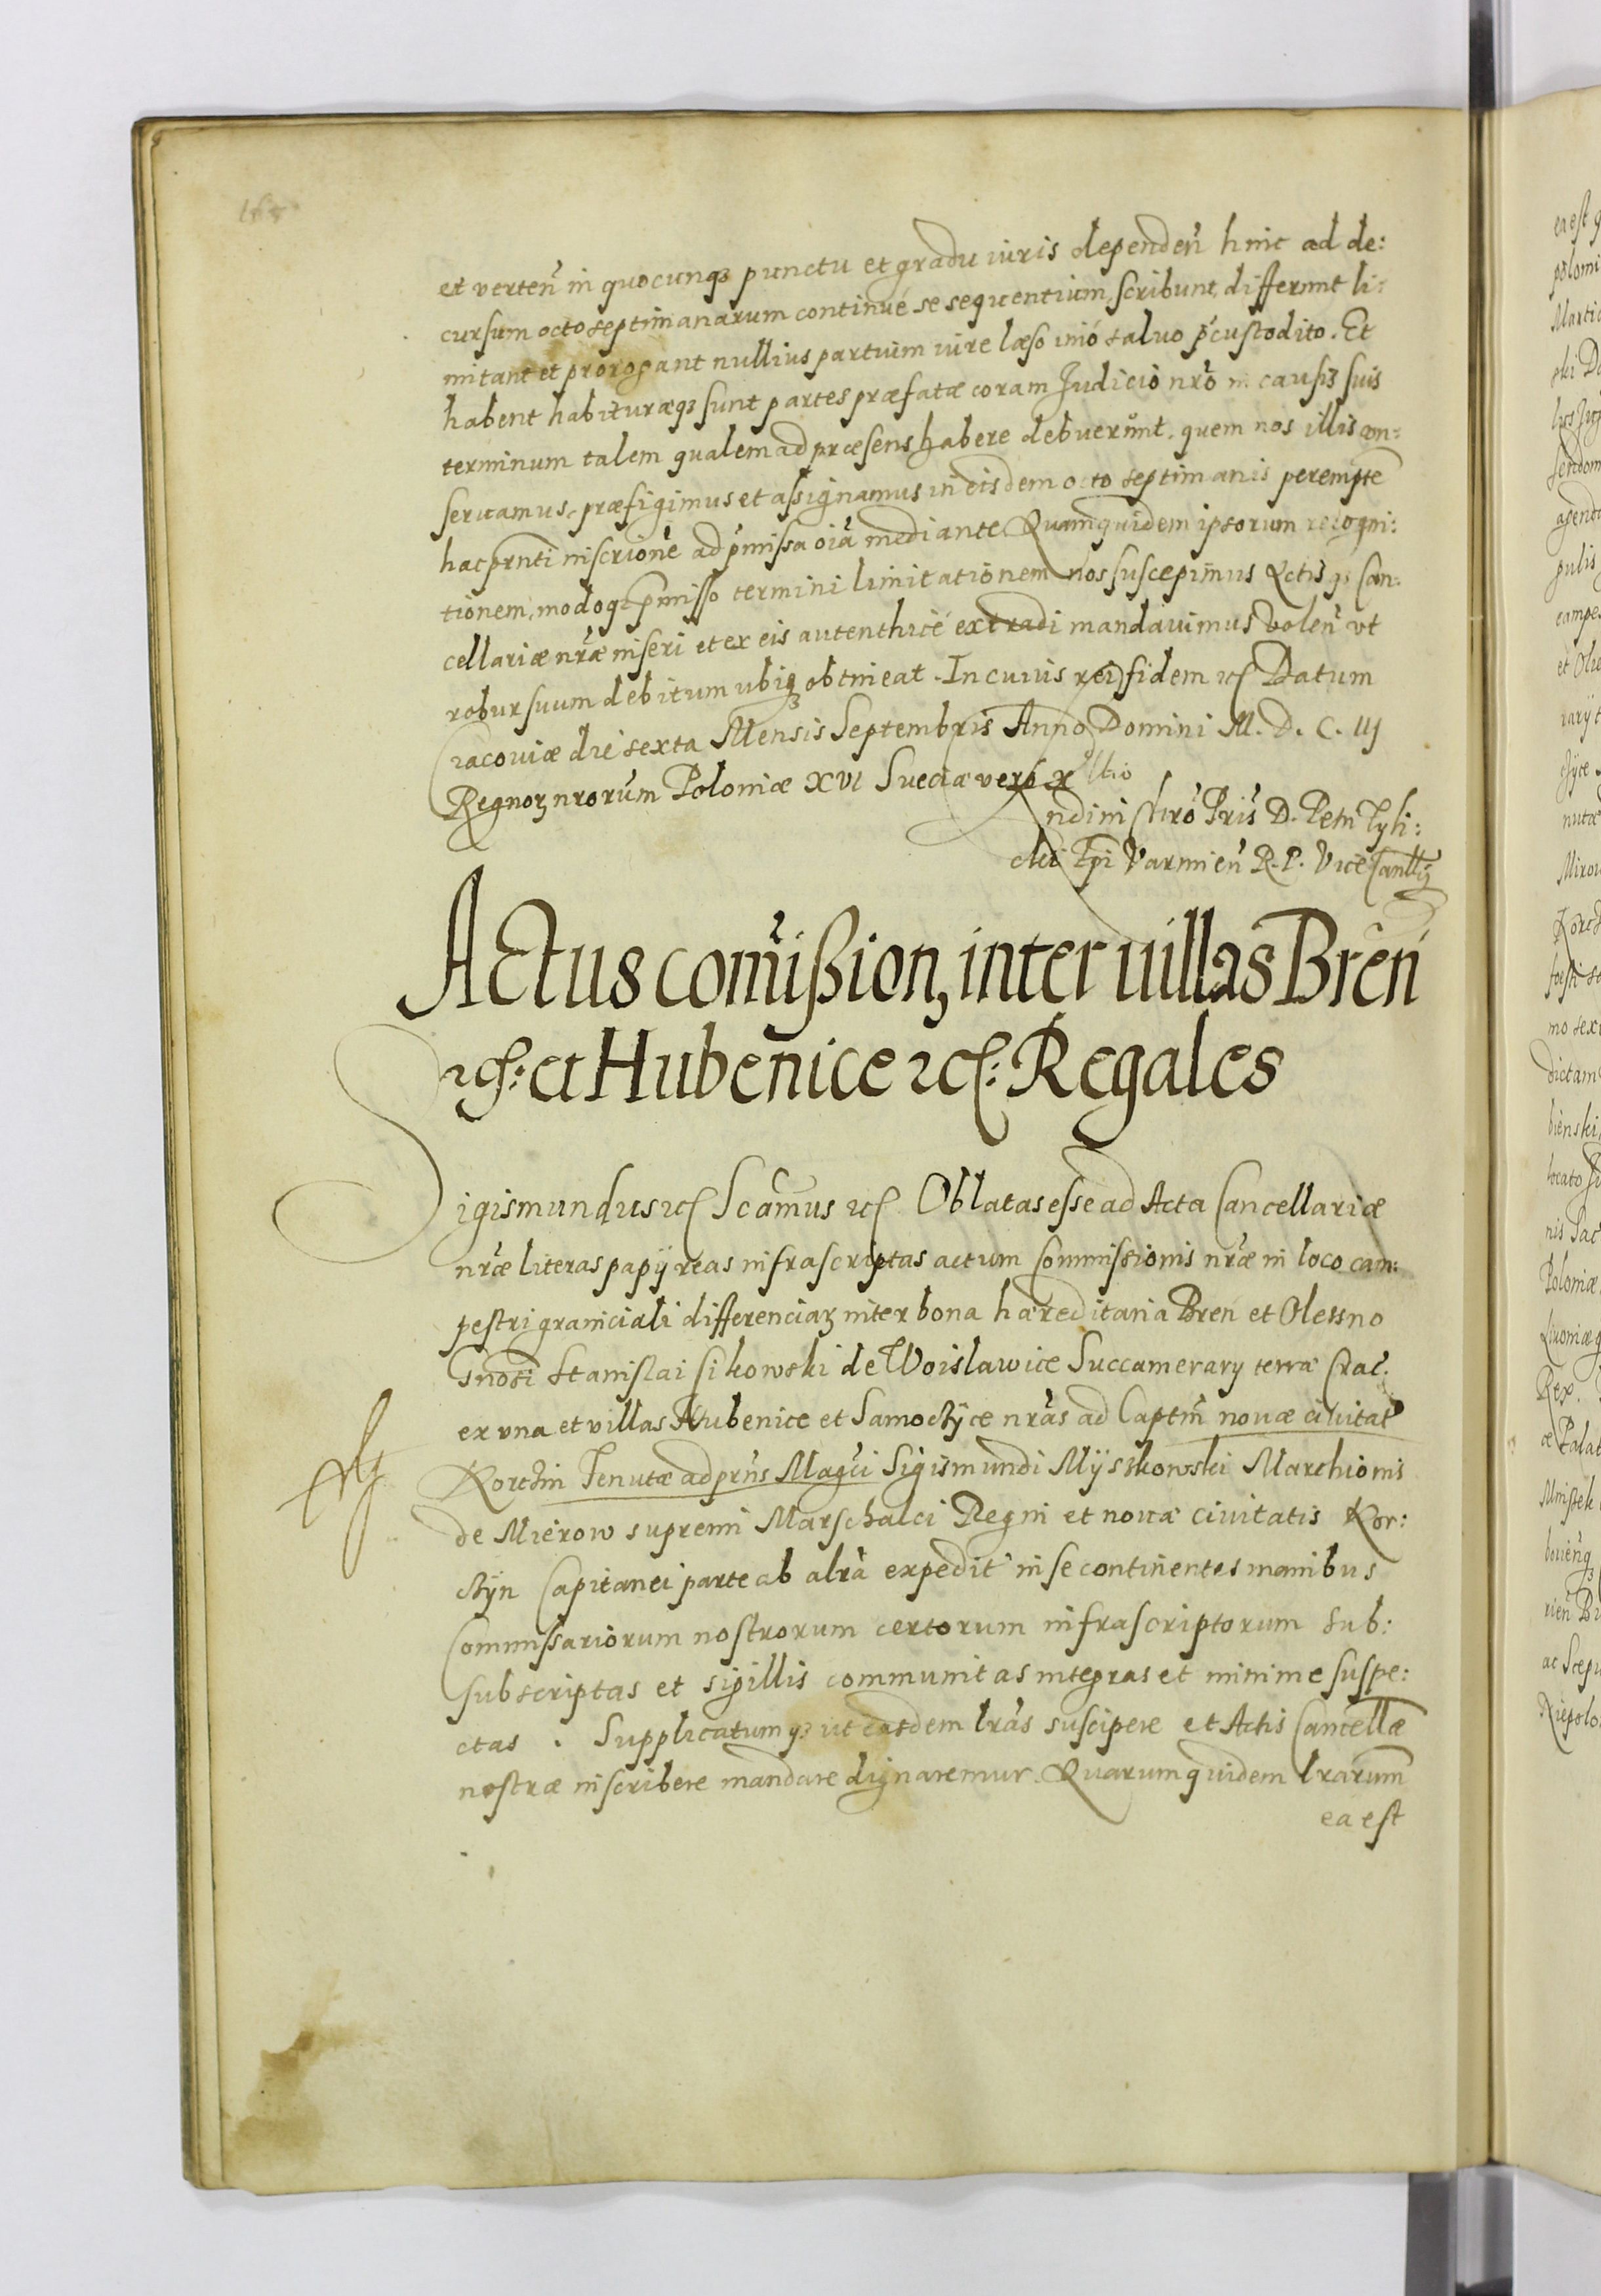 et verteñ in quocunqꝫ punctu et gradu iuris dependeñ hinc ad de:
cursum octo septimanarum continué se sequentium, scribunt, differunt li:
mitant et prorogant nullius partium iure læso imó salvo pʼcustodito. Et
habent habituræqꝫ sunt partes præfatæ coram Judicio nr̃o in causis suis
terminum talem qualem ad præsens habere debuerunt, quem nos illis con:
servamus, præfigimus et assignamus in eisdem octo septimanis perempte
hac prnti inscrione ad pʼmissa oĩa mediante. Quamquidem ipsorum recogni:
tionem, modoqꝫ pʼmisso termini limitationem nos suscepimus Actisqꝫ Can:
cellariæ nr̃æ inseri et ex eis autenthicé extradi mandavimus voleñ vt
robur suum debitum ubiqꝫ obtineat. In cuius rei fidem ꝛcʃ Datum
Cracoviæ die sexta Mensis Septembris Anno Domini M. D. C. IIJ
Regnoꝝ nrorum Poloniæ XVI Sueciæ vero X Aᵒ
ndini Chrõ Pr̃is D. Petri Tyli:
cki Epĩ Varmieñ R. P. Vice Cancllꝫ
Actus com̃ißionꝫ inter villas Breń
ꝛcʃ: et Hubenice ꝛcʃ: Regales
Sigismundus ꝛcʃ Scamus ꝛcʃ Oblatas esse ad Acta Cancellariæ
nr̃æ literas papÿreas infrascriptas actum Commissionis nr̃æ in loco cam:
pestri graniciali differenciaꝝ inter bona hæreditaria Breń et Olessno
Gnosi Stanislai Cikowski de Woislawice Succamerarÿ terræ Crac.
ex vna et villas Hubenice et Samoczÿce nr̃as ad Captm̃ novæ civitat
Korczin Tenutæ ad prñs Magci Sigismundi Mÿszkowski Marchionis
de Mierow supremi Marschalci Regni et novæ civitatis Kor:
czÿn Capitanei parte ab altã expedit in se continentes manibus
Commissariorum nostrorum certorum infrascriptorum sub:
subscriptas et sigillis communitas integras et minime suspe:
ctas. Supplicatumqꝫ ut easdem lr̃as suscipere et Actis Cancellæ
nostræ inscribere mandare dignaremur. Quarumquidem lrarum
ea est